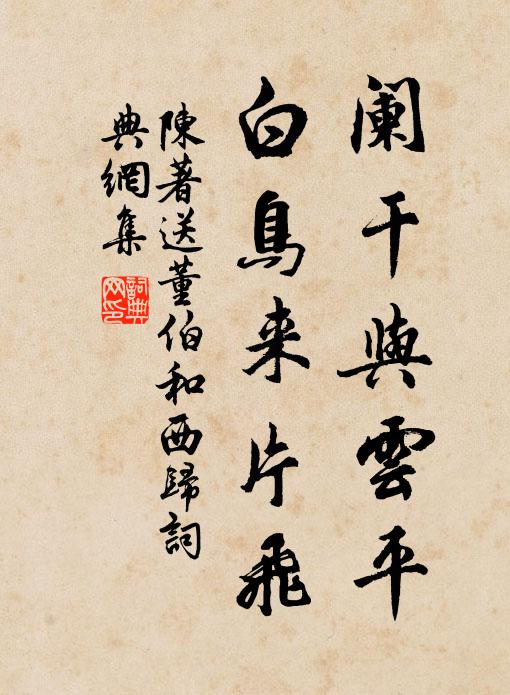 阑干與雲平
白鳥来片飛
陳著送董伯和西歸詞
典網集
詞典網印